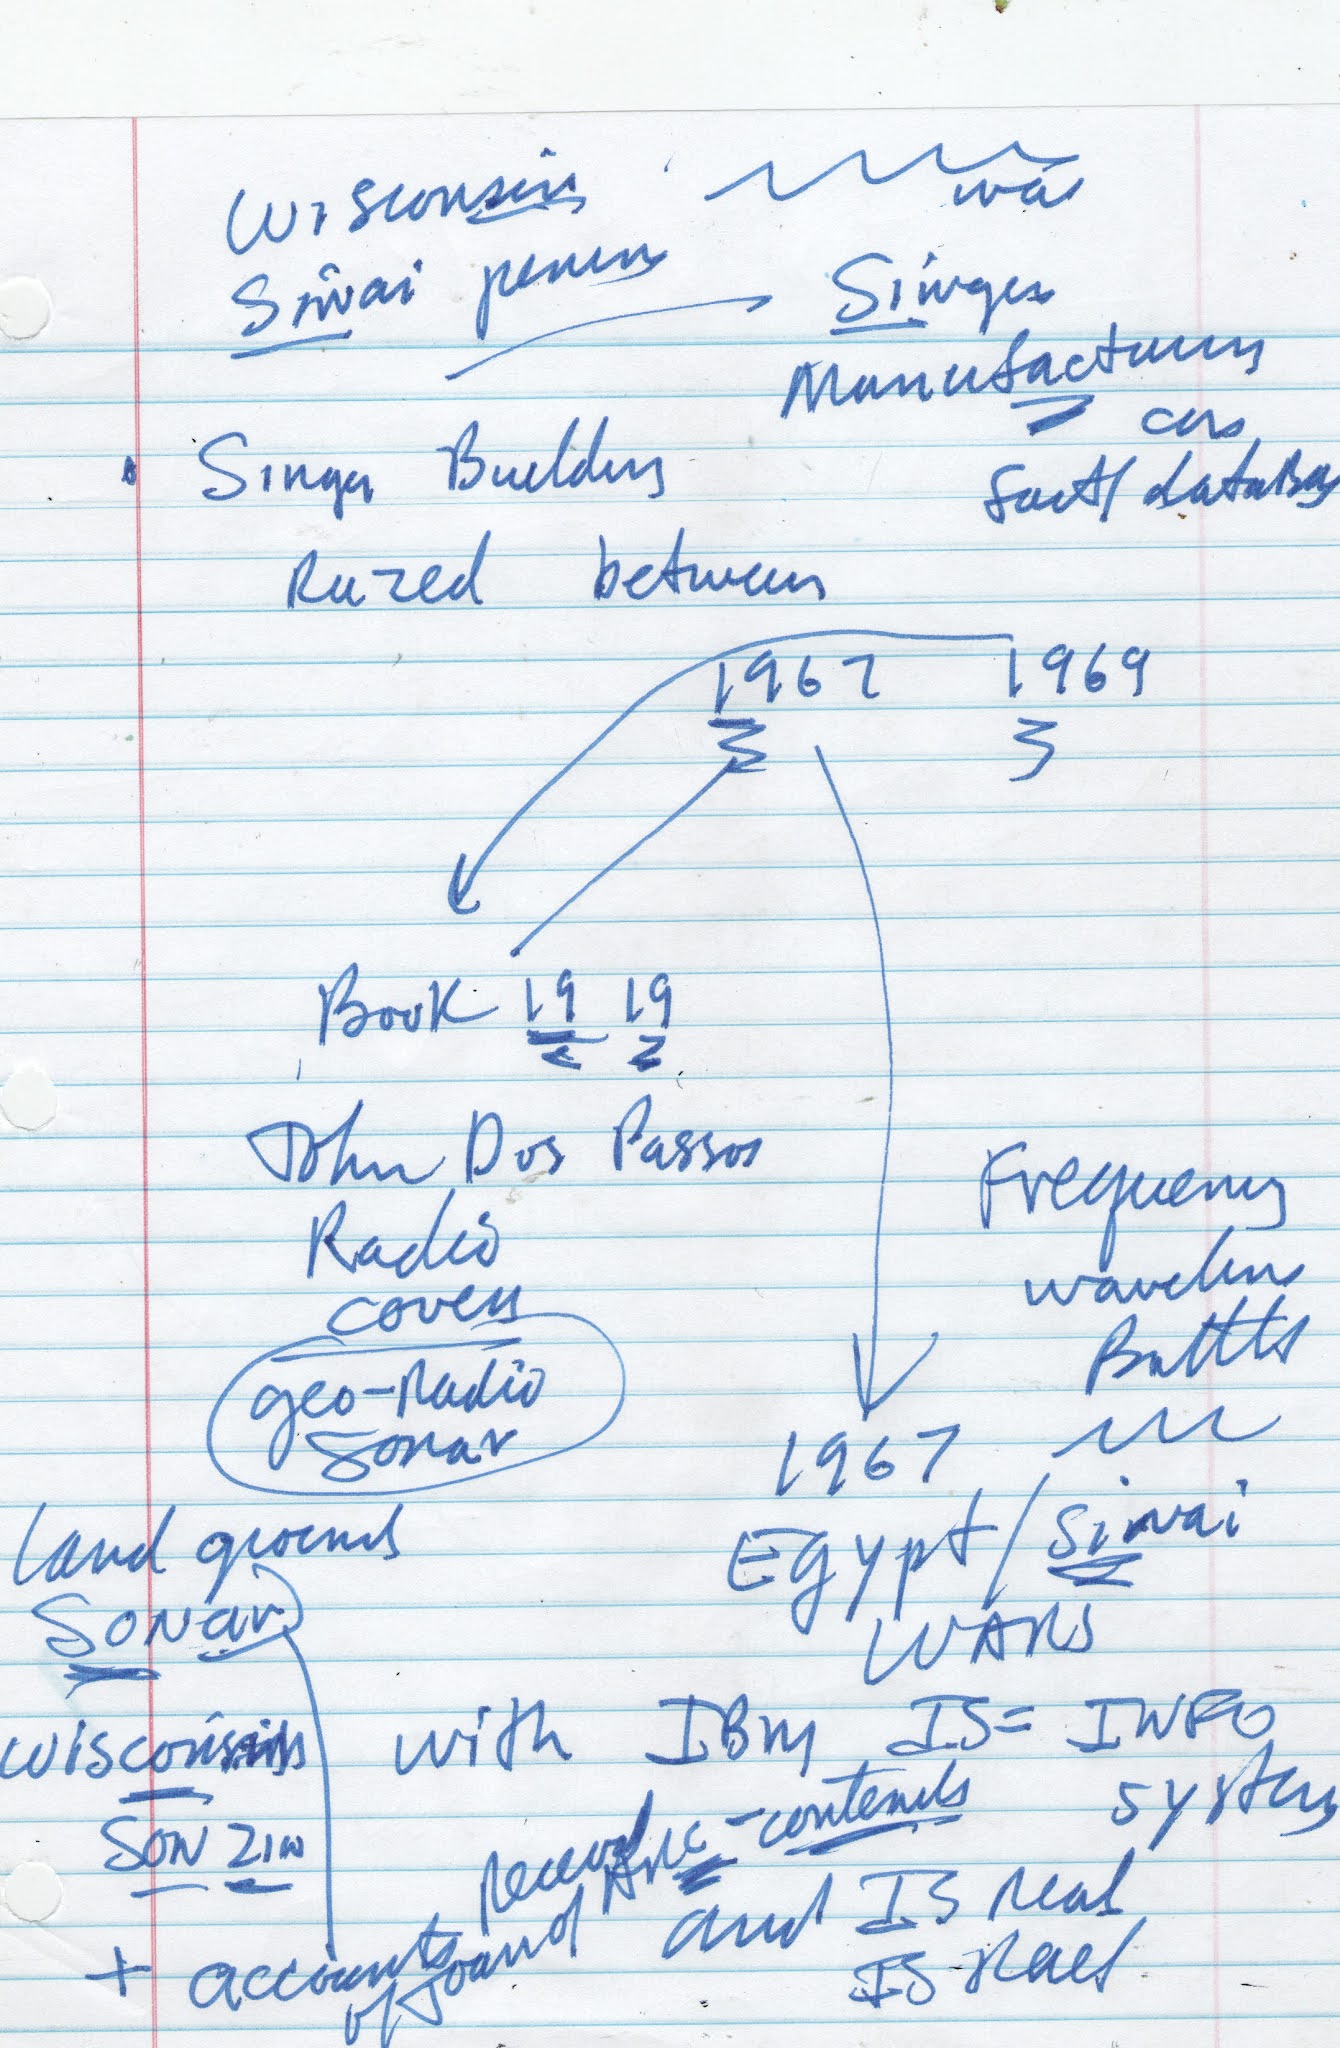 Wisconsin
was
Sinai penins
Singer
Manufacturing
cars
fact/databas
Singer Building
Razed between
1967 1969
Book 19 19
John Dos Passos
Radio
covers
geo-Radio
sonar
Frequency
Battles
1967
Egypt/Sinai
WARS
land ground
Sonar
Wisconsin with IBM IS= INFO
system
contends
Son zin
and IS real
IS rael
+ accounts
of Joan of Arc